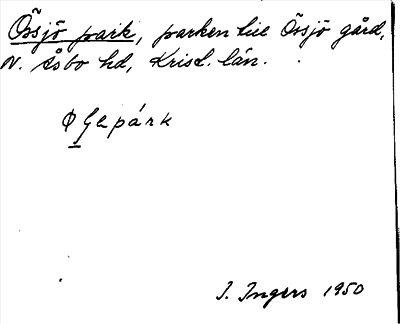 Össjö park, parken till Össjö gård,
N. Åsbo hd, Krist. län.
I. Ingers 1950